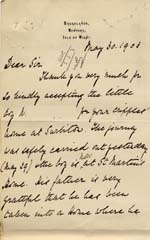 NEWPORT,
ISLE OF WIGHT.
May 30. 1903
Dear Sir
Thank you very much for
so kindly accepting the little
boy for your cripples'
home at Surbiton. The journey
was safely carried out yesterday
(May 29) other boy is St Martin's
Home. His father is very
grateful that he has been
taken into a Home where he